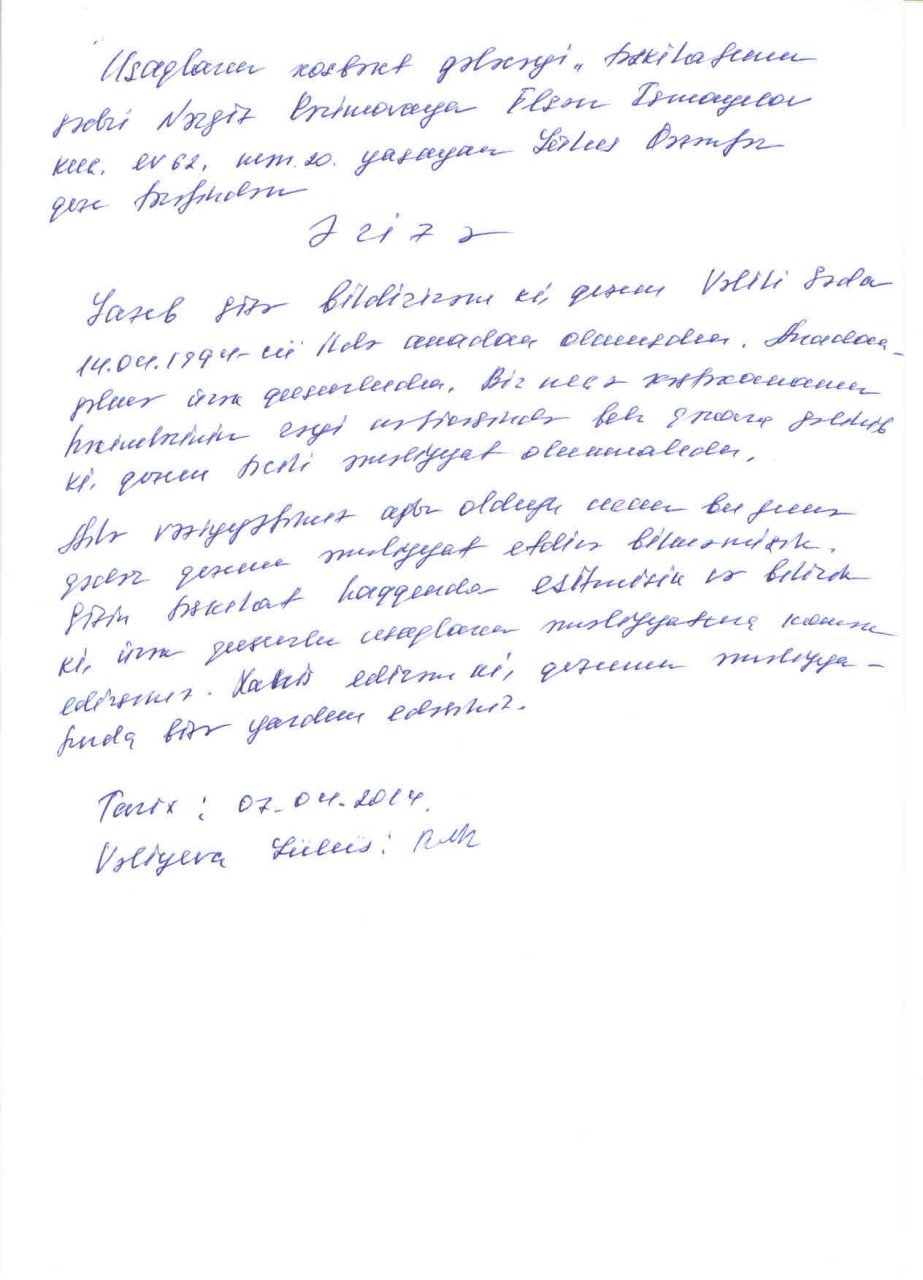 Uşaqların xoşbəxt gələcəyi" təşkilatının
sədri Nərgiz Kərimovaya Elşən İsmayılov
küç. ev 62, mən.20. yaşayan Sülüs
qızı tərəfindən
Ə r i z ə
Yazıb sizə bildirirəm ki, qızım Vəlili Səda
14.04.1994-cü ildə anadan olmuşdur. Anadan-
gəlmə ürək qüsurludu. Bir neçə xəstəxananın
həkimlərinin rəyi nəticəsində belə qərara gəlinib
ki, qızım təcili əməliyyat olunmalıdır.
Ailə vəziyyətimiz ağır olduğu üçün bu günə
qədər qızımı əməliyyat etdirə bilməmişik.
Sizin təşkilat haqqında eşitmişik və bilirik
ki, ürək qüsurlu uşaqların əməliyyatına kömək
edirsiniz. Xahiş edirəm ki, qızımın əməliyya-
tında bizə yardım edəsiniz.
Tarix: 07.04.2014.
Vəliyeva Sülüs: